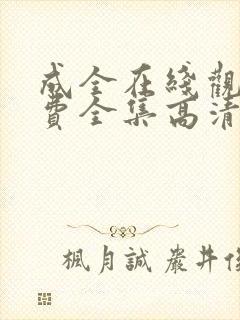 成全在綫觀
費全集高清
楓月誠 嚴井俊